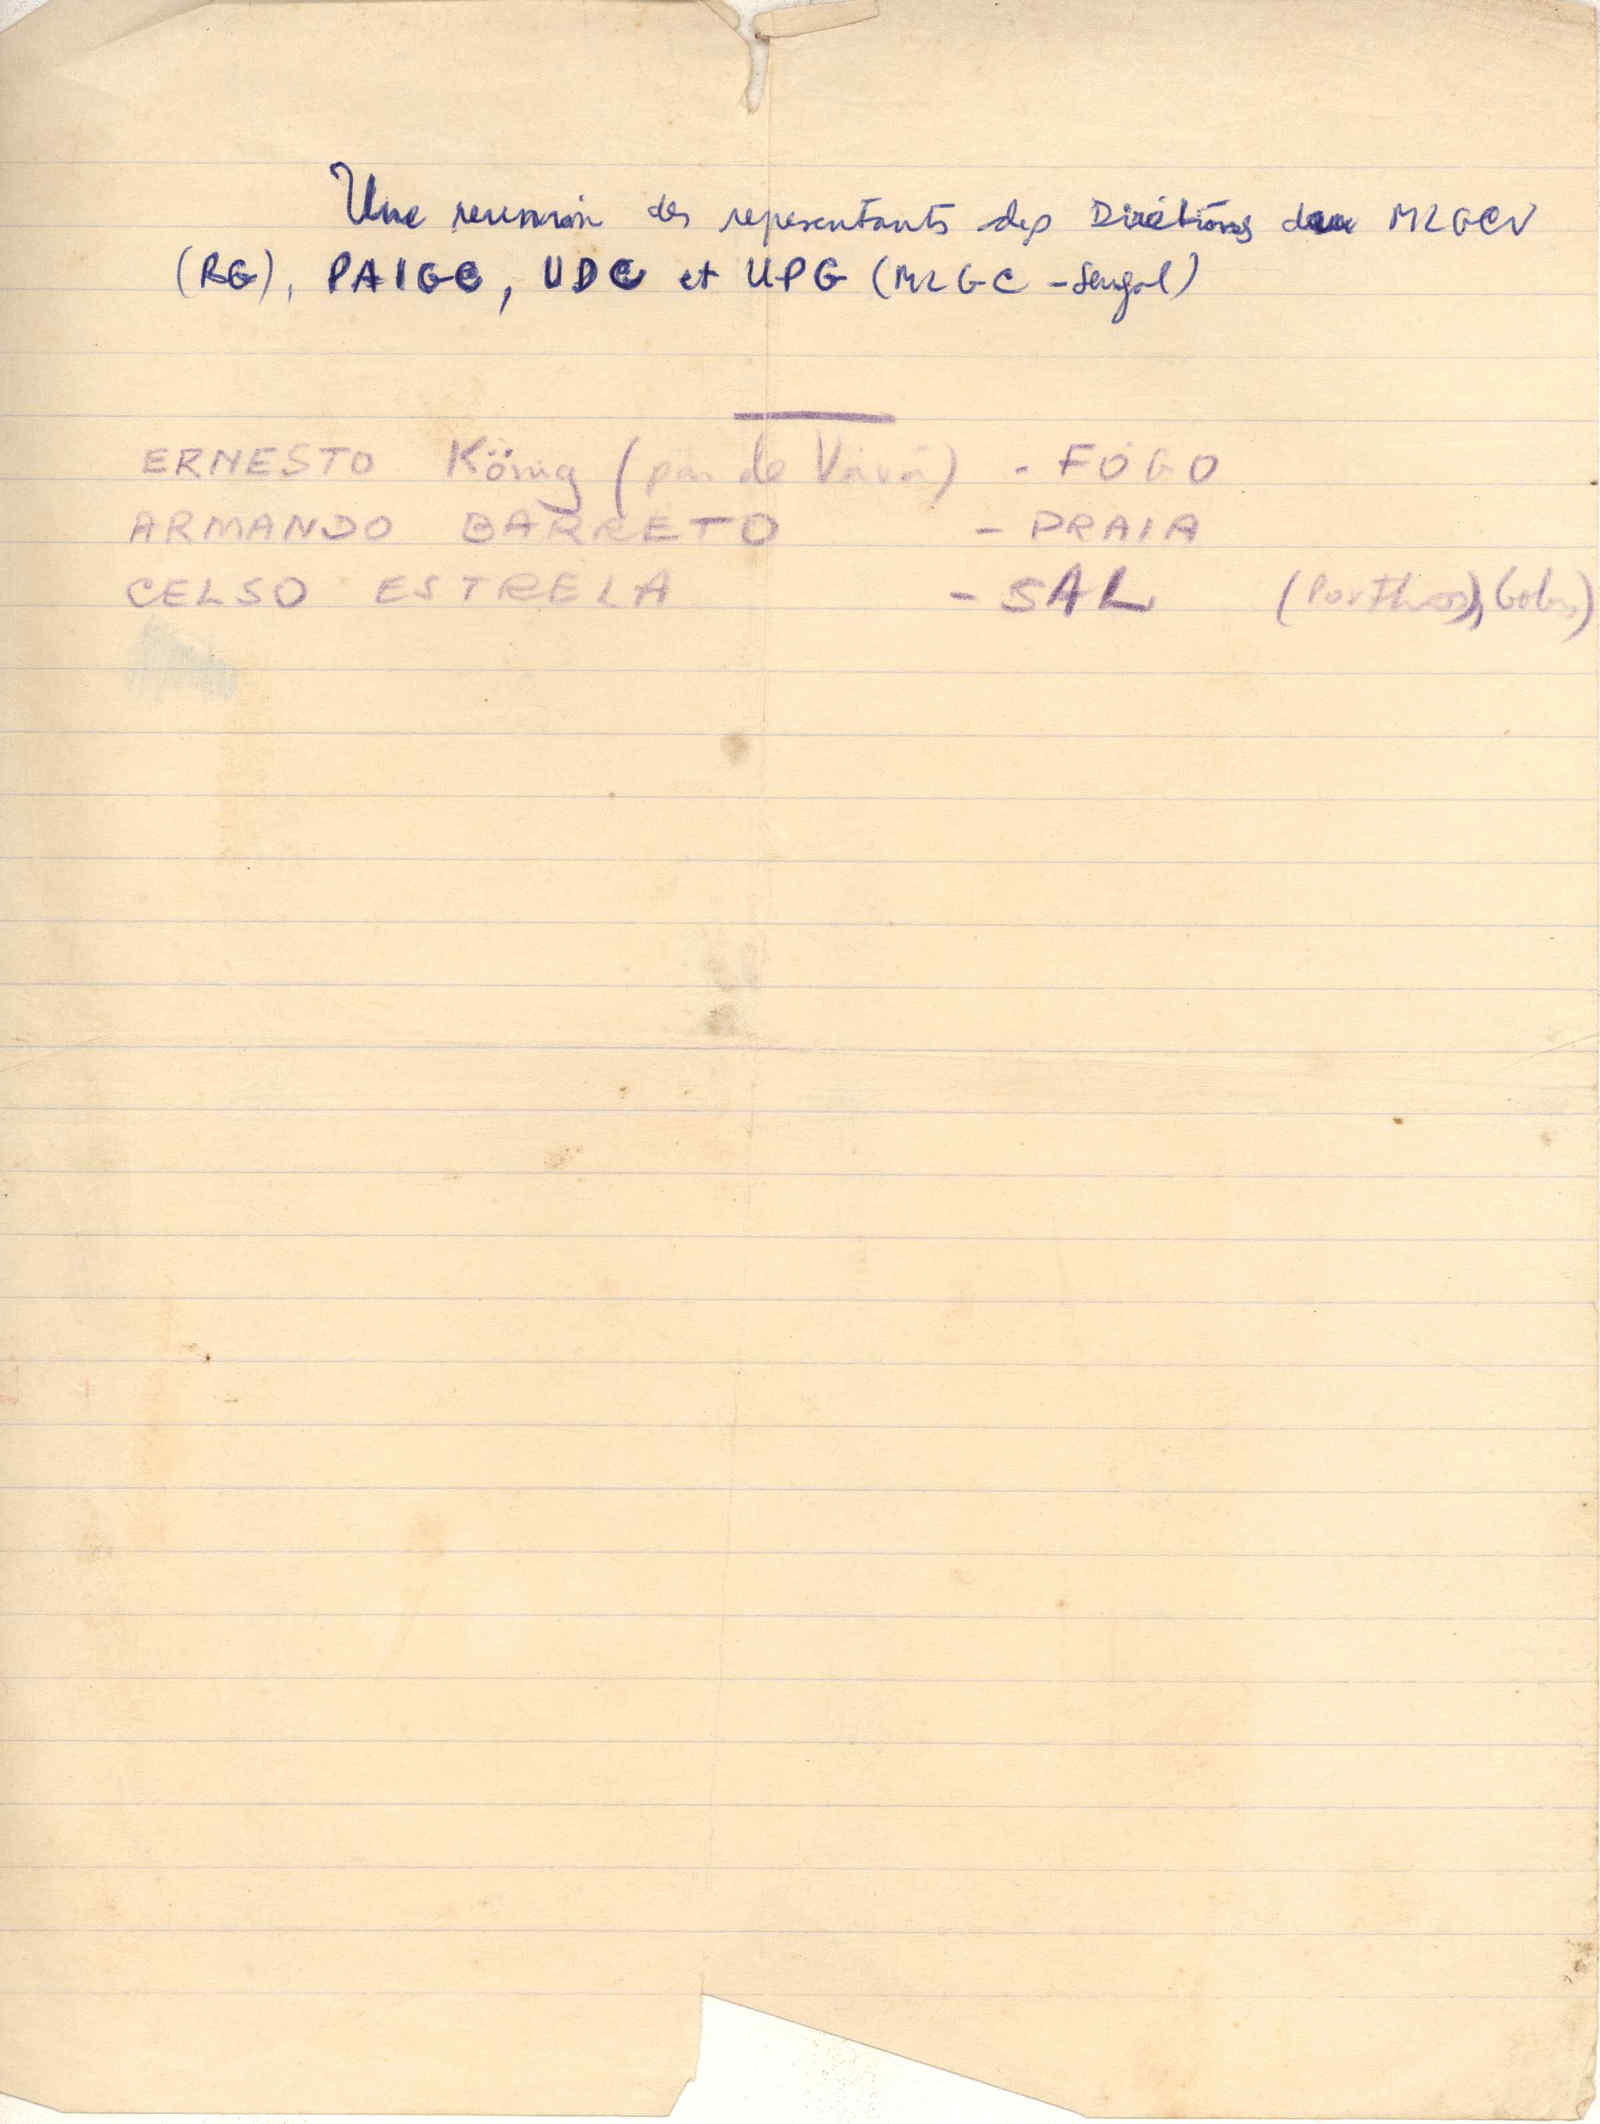 Une reunion des representants des Directions du MLGCV
(RG), PAIGC, UDC et UPG (MLGC - Sengal)
ERNESTO König (pai de Vavá) - FOGO
ARMANDO BARRETO - PRAIA
CELSO ESTRELA - SAL (Porthos),